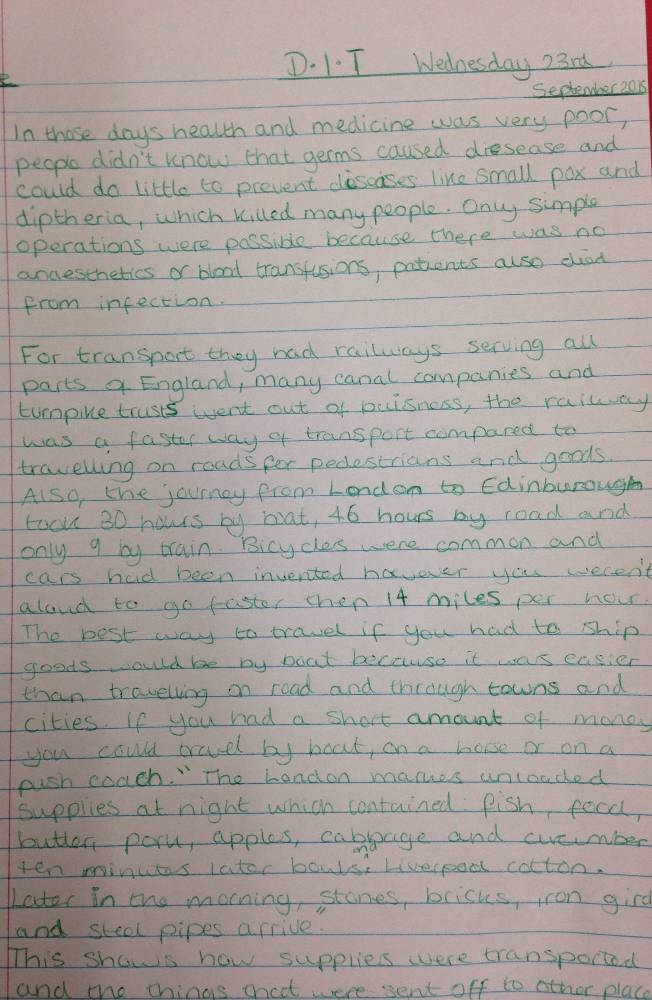 D.I.T Wednesday 23rd
September 2015
In those days health and medicine was very poor,
people didn't know that germs caused diesease and
could do little to prevent diseases like small pox and
diptheria, which killed many people. Only simple
operations were possible because there was no
anaesthetics or blood transfusions, patients also died
from infection.
For transport they had railways serving all
parts of England, many canal companies and
turnpike trusts went out of buisness, the railway
was a faster way of transport compared to
travelling on roads for pedestrians and goods.
Also, the journey from London to Edinburough
took 30 hours by boat, 46 hours by road and
only 9 by train. Bicycles were common and
cars had been invented however you weren't
aloud to go faster then 14 miles per hour.
The best way to travel if you had to ship
goods would be by boat because it was easier
than travelling on road and through towns and
cities. If you had a short amount of money
you could travel by boat, on a horse or on a
push coach." The London markes unloaded
supplies at night which contained: fish, food,
butter, pork, apples, cabbage and cucumber
ten minutes later Liverpool cotton.
Later in the morning, stones, bricks, iron gird
and steel pipes arrive."
This shows how supplies were transported
and the things that were sent off to other place